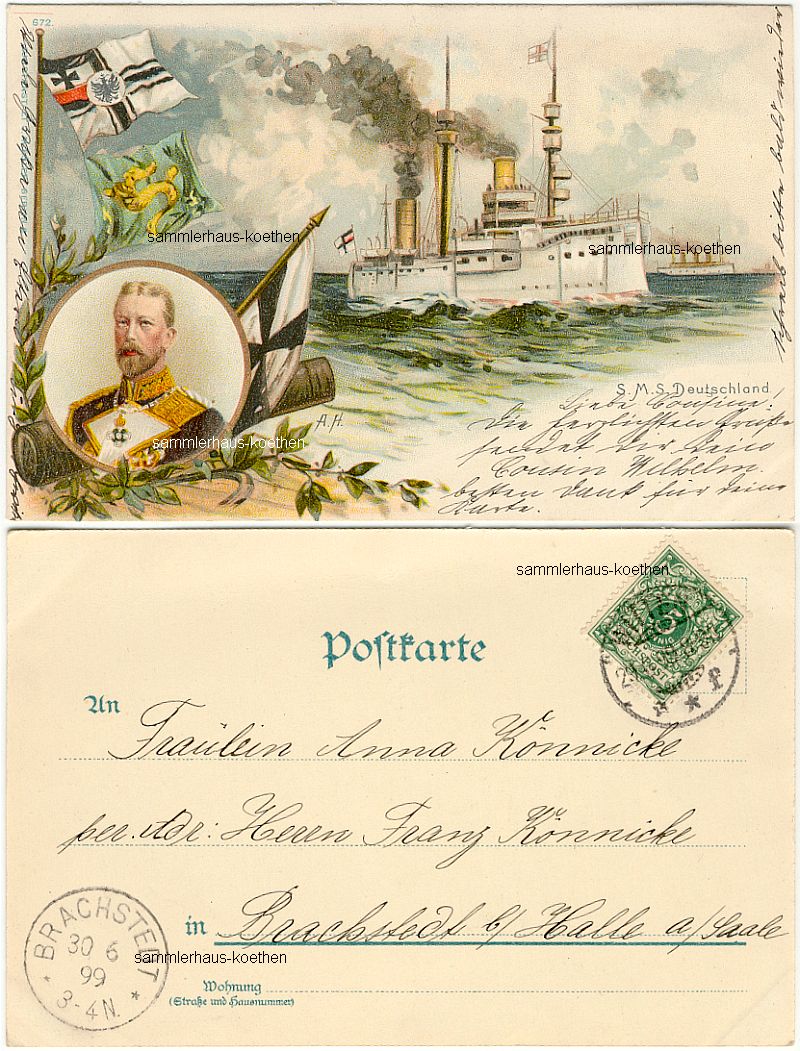 672.
sammlerhaus-koethen
sammlerhaus-koethen
sammlerhaus-koethen
A.H.
S.M.S. Deutschland.
Liebe Cousine!
Die herzlichsten Grüße
sendet Dir Dein
Cousin Wilhelm.
besten Dank für Deine
Karte.
Schreib bitte bald wieder
sammlerhaus-koethen
Postkarte
An
Fräulein Anna Könnicke
per. Adr: Herrn Franz Könnicke
in Brachstedt b/ Halle a/Saale
BRACHSTEDT
30 6
99
3-4N.
sammlerhaus-koethen
Wohnung
(Straße und Hausnummer)